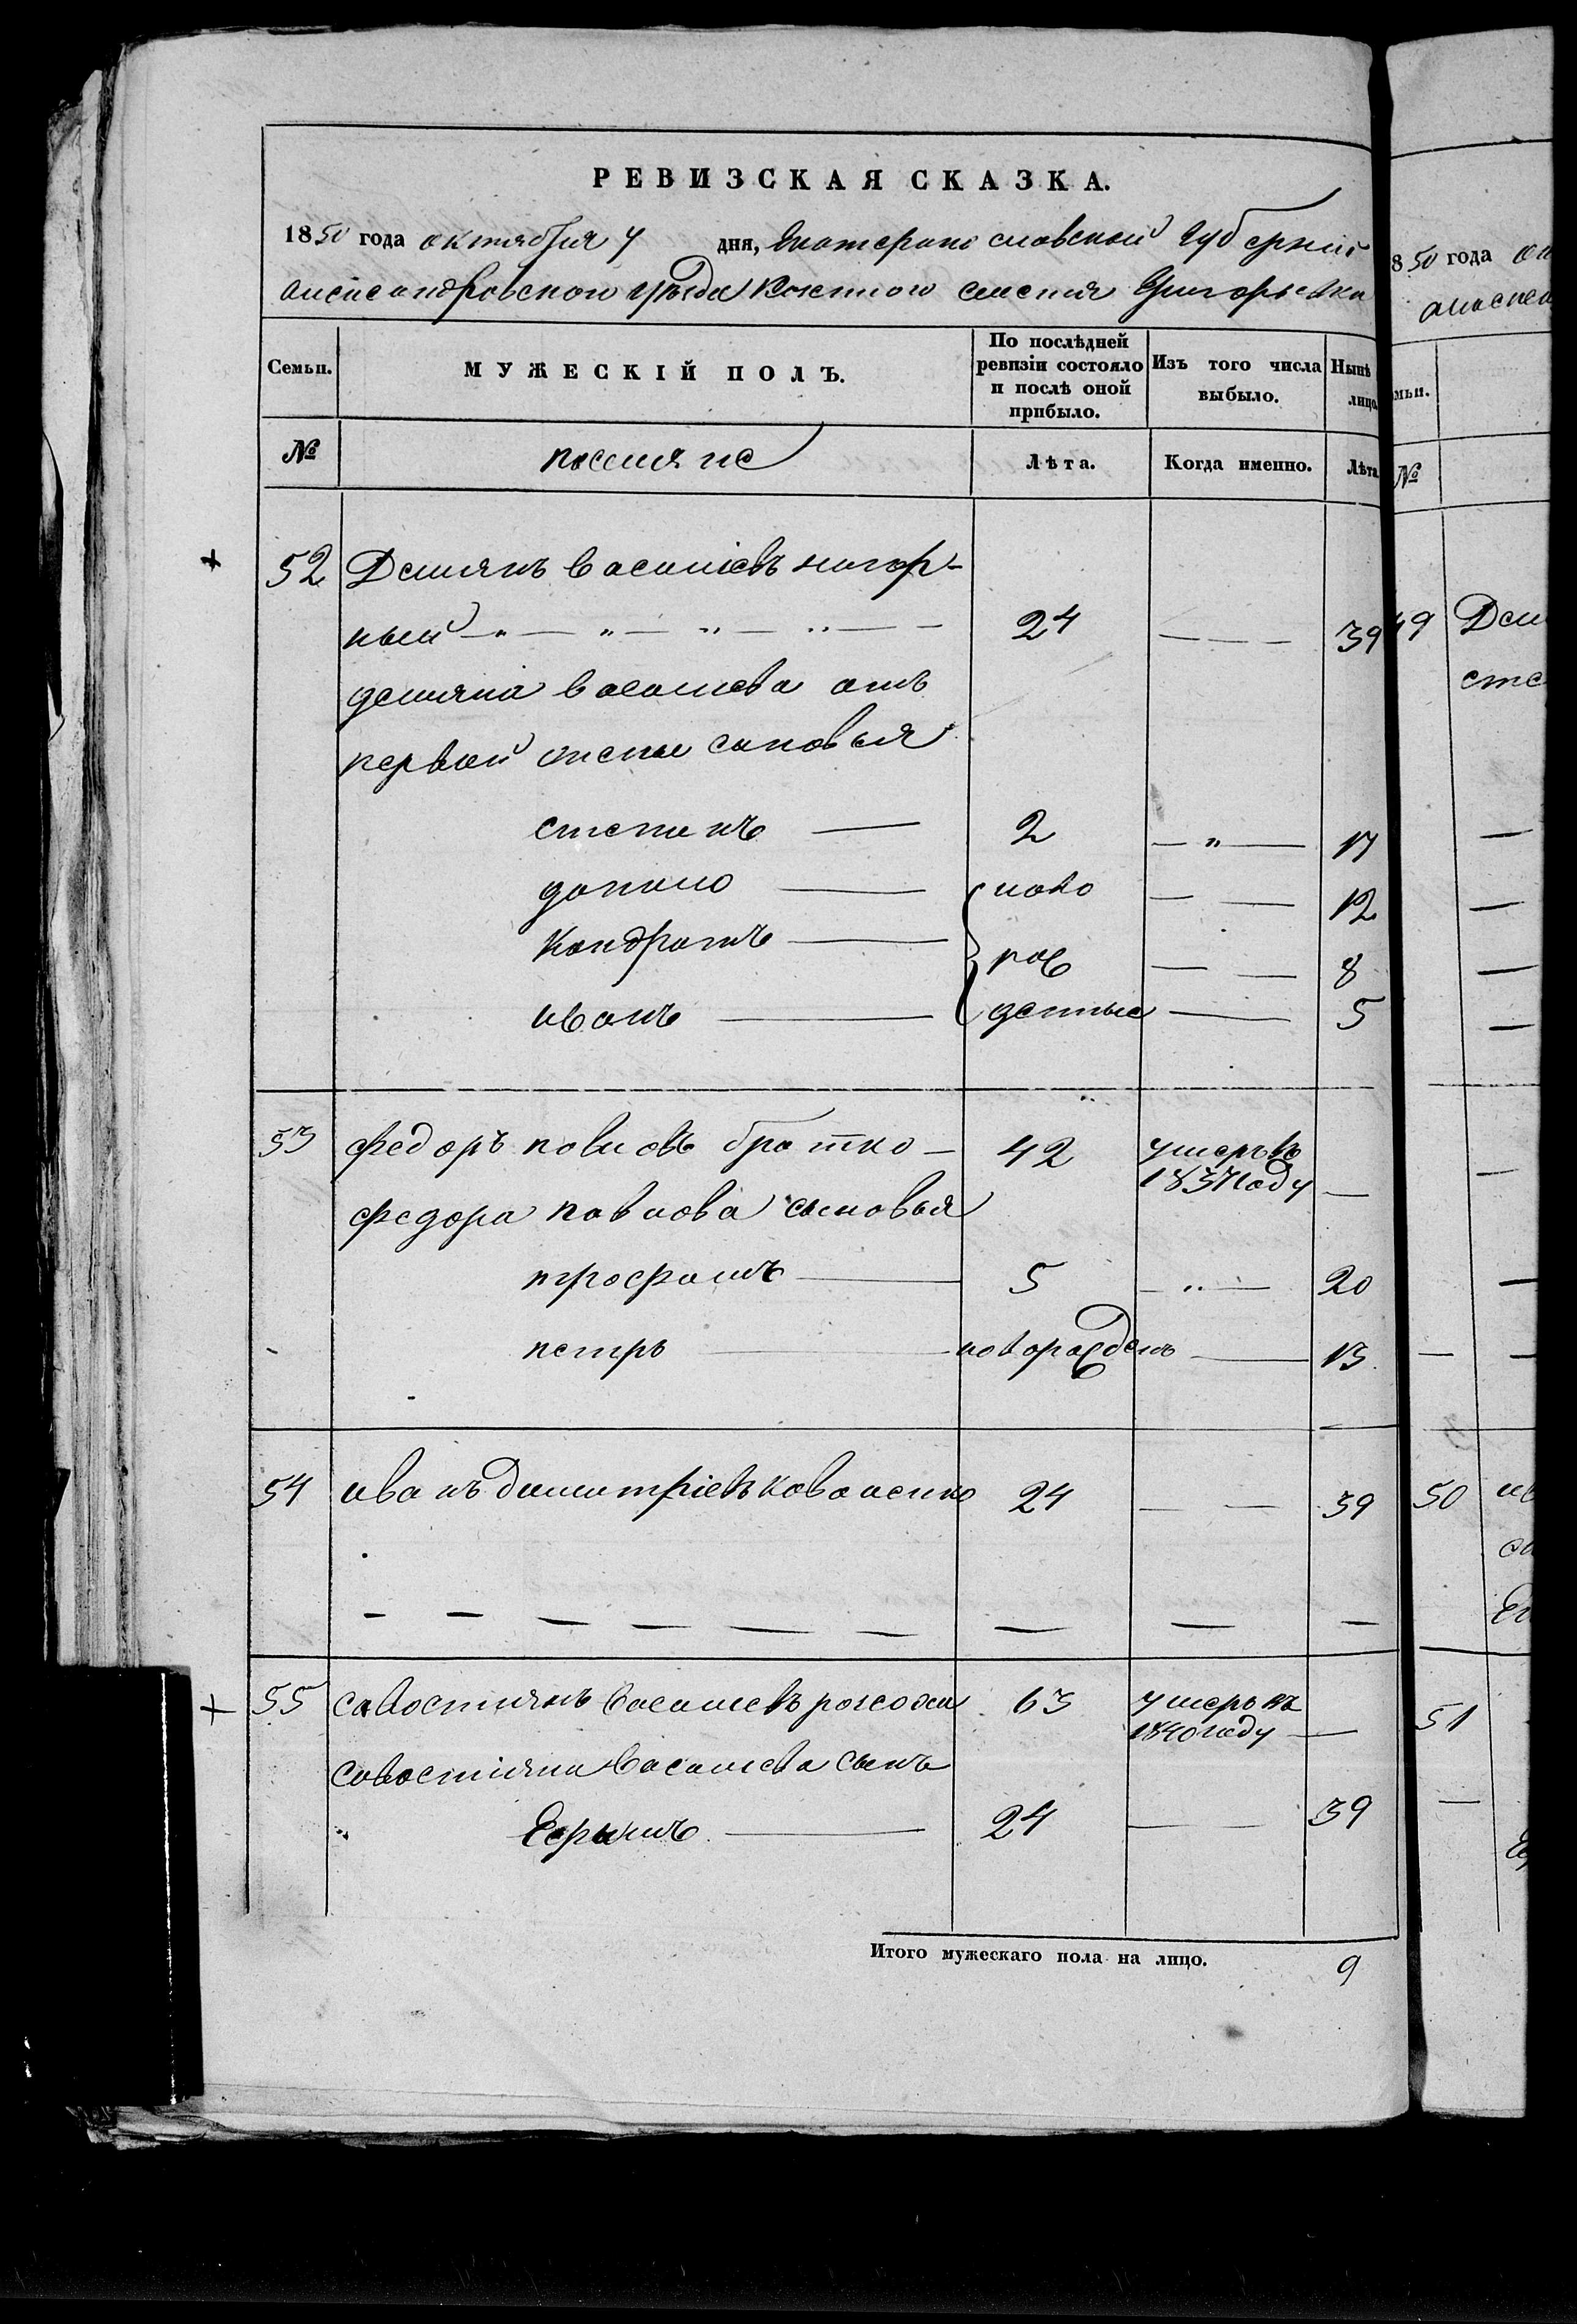 РЕВИЗСКАЯ СКАЗКА.
1850 года октября 4 дня, Екатеринославской Губерніи
Александровского уѣзда Казенного селенія Григорьевки
Семьи. МУЖЕСКІЙ ПОЛЪ. По послѣдней ревизіи состояло и послѣ оной прибыло. Изъ того числа выбыло. Нынѣ лицо.
№ поселяне Лѣта. Когда именно. Лѣта
52 Демянъ васильевъ нагор-
ный 24 39
демяна васильева отъ
первой жены сыновья
степанъ 2 17
данило ново 12
Кондратъ рож 8
иванъ денные 5
53 Федоръ павловъ братко 42 умеръ въ 1837 году
федора павлова сыновья
трофимъ 5 20
петръ новорожденъ 13
54 иванъ димитріевъ коваленко 24 39
55 савостиянъ васильевъ 63 умеръ въ 1840 году
савостияна васильева сынъ
Ефимъ 24 39
Итого мужескаго пола на лицо. 9
850 года ок
алексан
мьи.
№
49 Дем
сте
50 ив
51